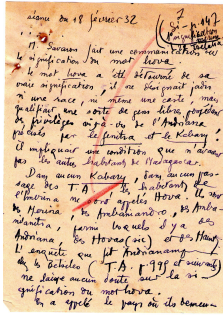 séance du 18 février 32
M. Savaron fait une communication sur
la signification du mot hova.
Le mot hova a été détourné de sa
vraie signification, il ne désignait jadis
ni une race, ni même une caste mais
qualifiait une sorte de gens
des privilèges d'Andriana
par le fenitra et le Kabary
il impliquait une condition que n'avaient
pas les autres habitants de Madagascar.
Dans aucun Kabary dans aucun pas-
sage des T.A. les habitants de
l'Imerina ne sont appelés Hova. Ils sont
de Merina, Ambaniandro, des Ambo
nilanitra, parmi lesquels il y a des
Andriana, des Hovas (sic) et des
L'enquête que fit Andrianamp
(T.A. p 995 et suivants)
ne laisse aucun doute sur la si-
gnification du mot hova.
On a appelé le pays où ils demeu-